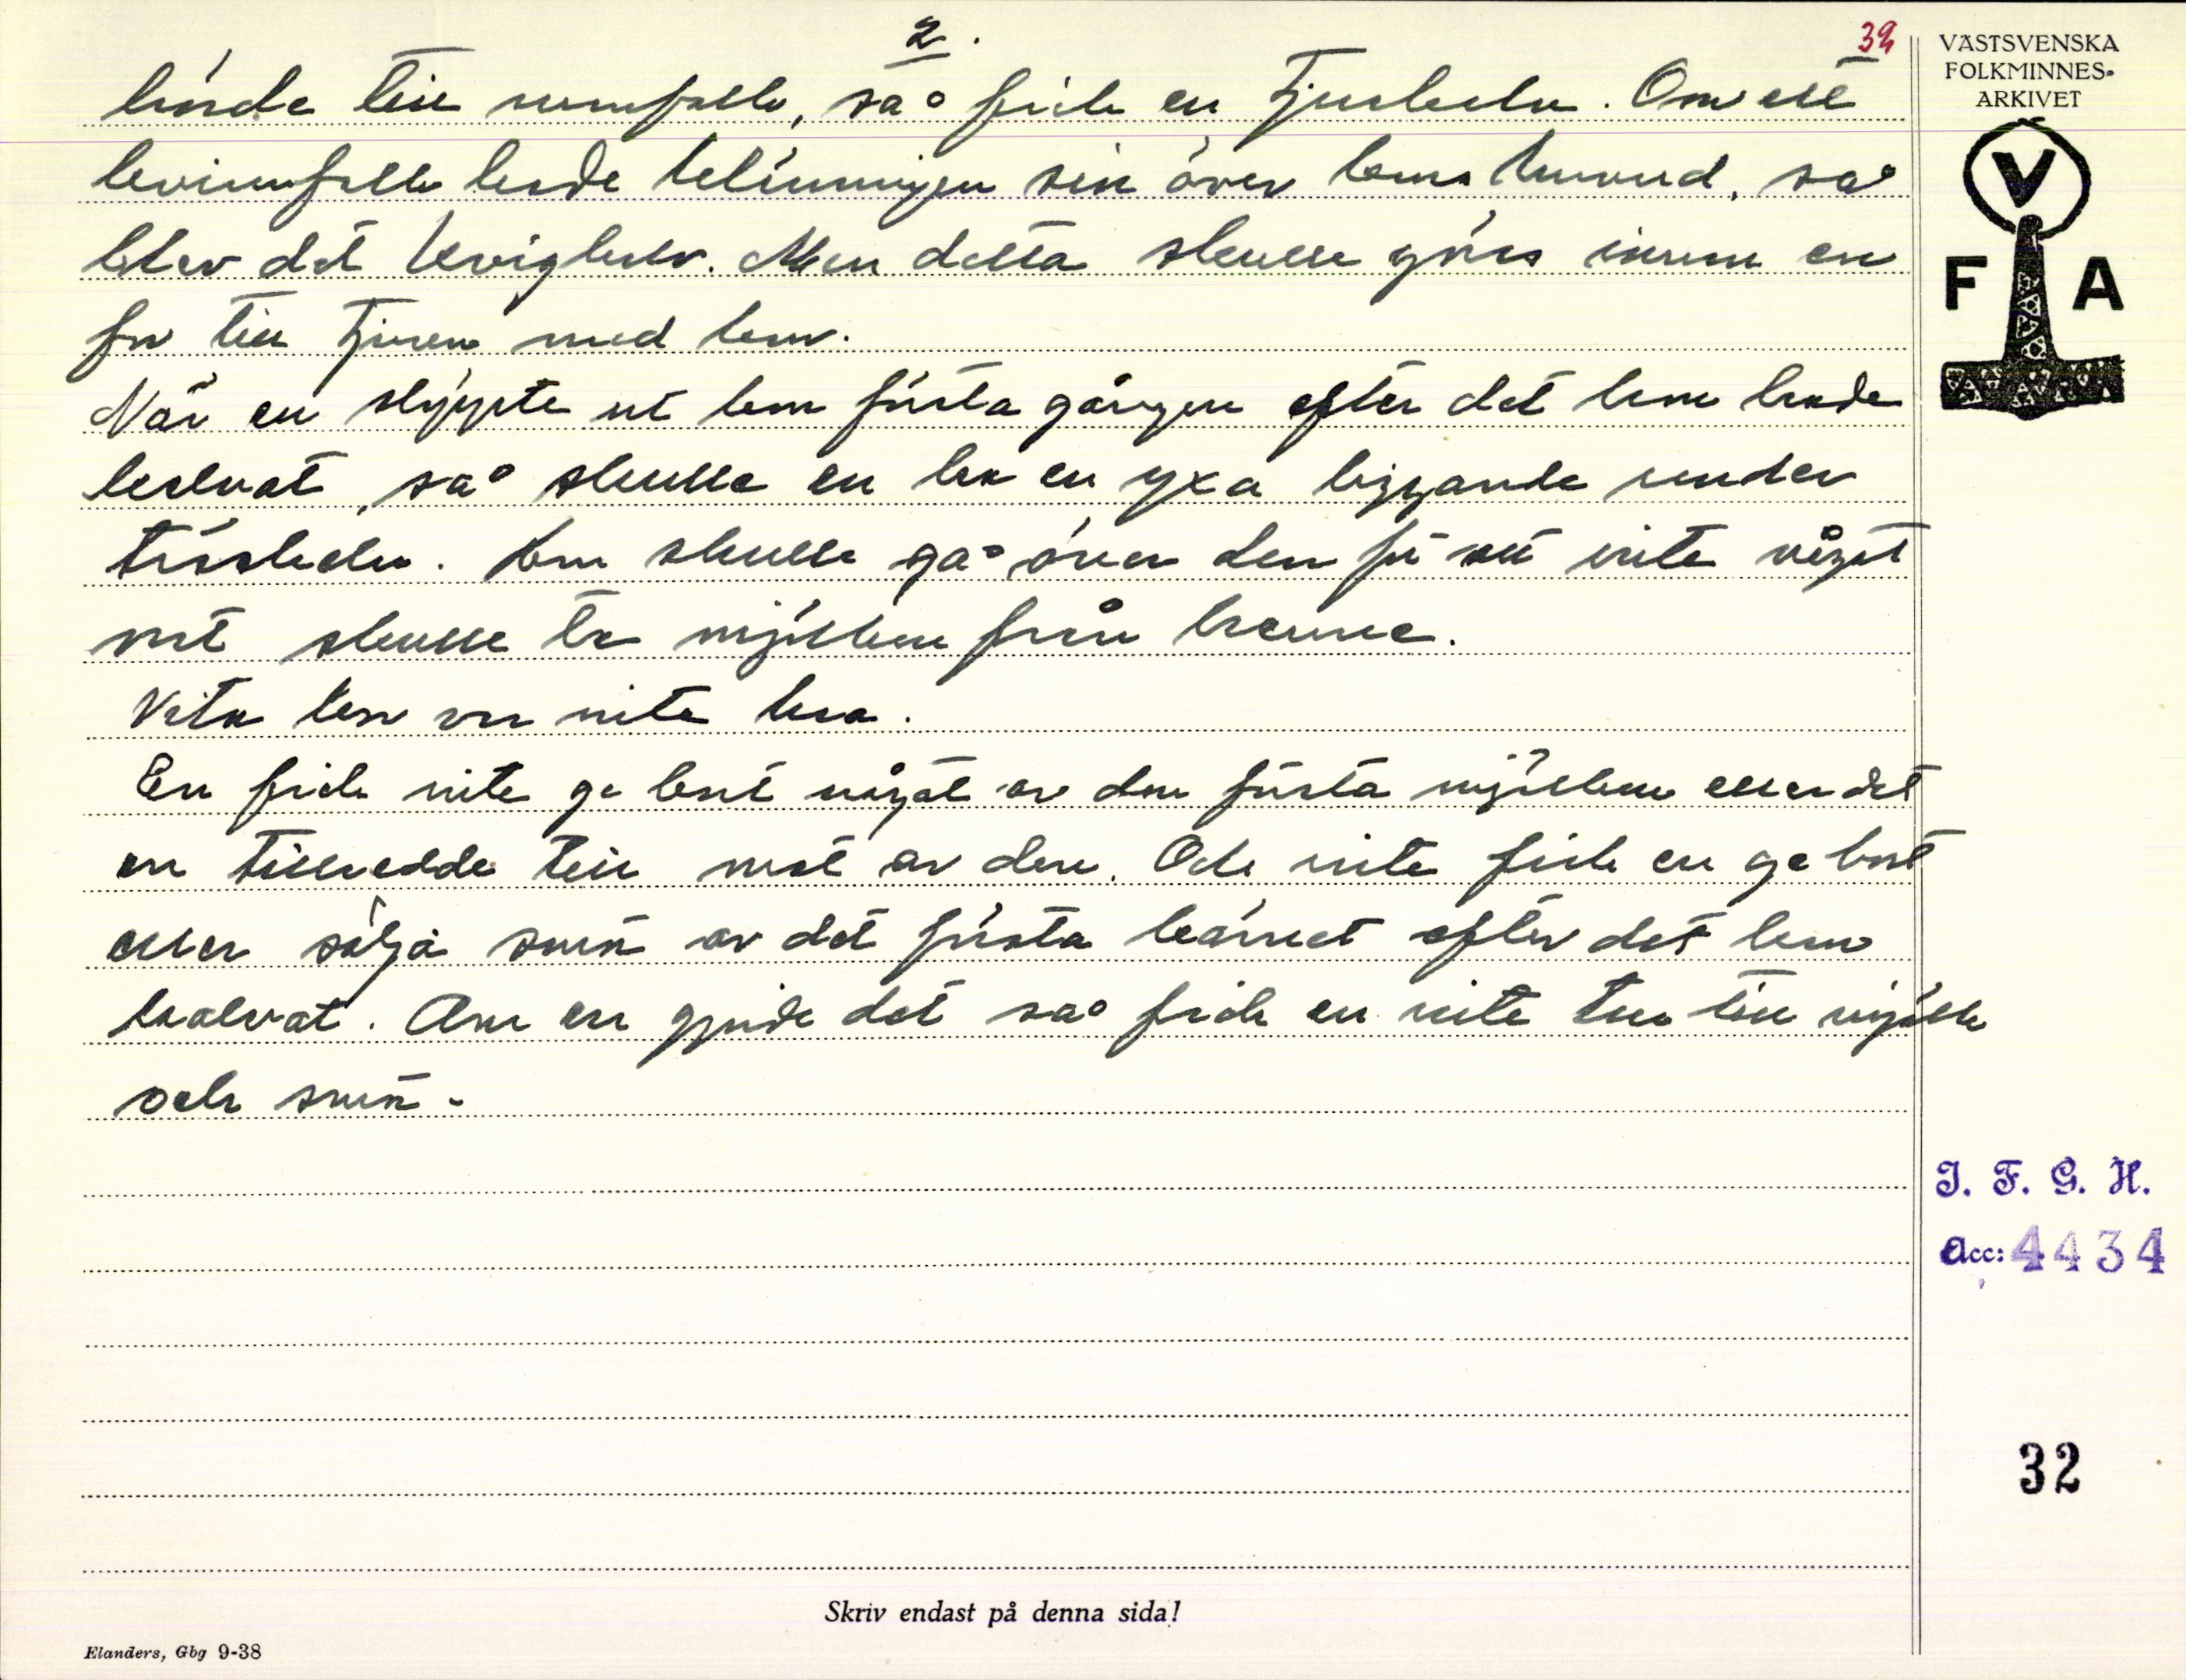 2.
39
hörde till manfolk, så fick en tjurkalv. Om ett
kvinnfolk hade klänningen sin över kons huvud, så
blev det kvigkalv. Men detta skulle göras innan en
for till tjuren med kon.
När en släppte ut kon första gången efter det hon hade
kalvat, så skulle en ha en yxa liggande under
tröskeln. Kon skulle gå över den för att inte något
ont skulle ta mjölken från henne.
Vita kor var inte bra.
En fick inte ge bort något av den första mjölken eller det
en tillredde till mat av den. Och inte fick en ge bort
eller sälja smör av det första kärnet efter det kon
kalvat. Om en gjorde det så fick en inte tur till mjölk
och smör.
VÄSTSVENSKA
FOLKMINNES-
ARKIVET
V
F A
I. F. G. H.
Acc: 4434
32
Skriv endast på denna sida!
Elanders, Gbg 9-38